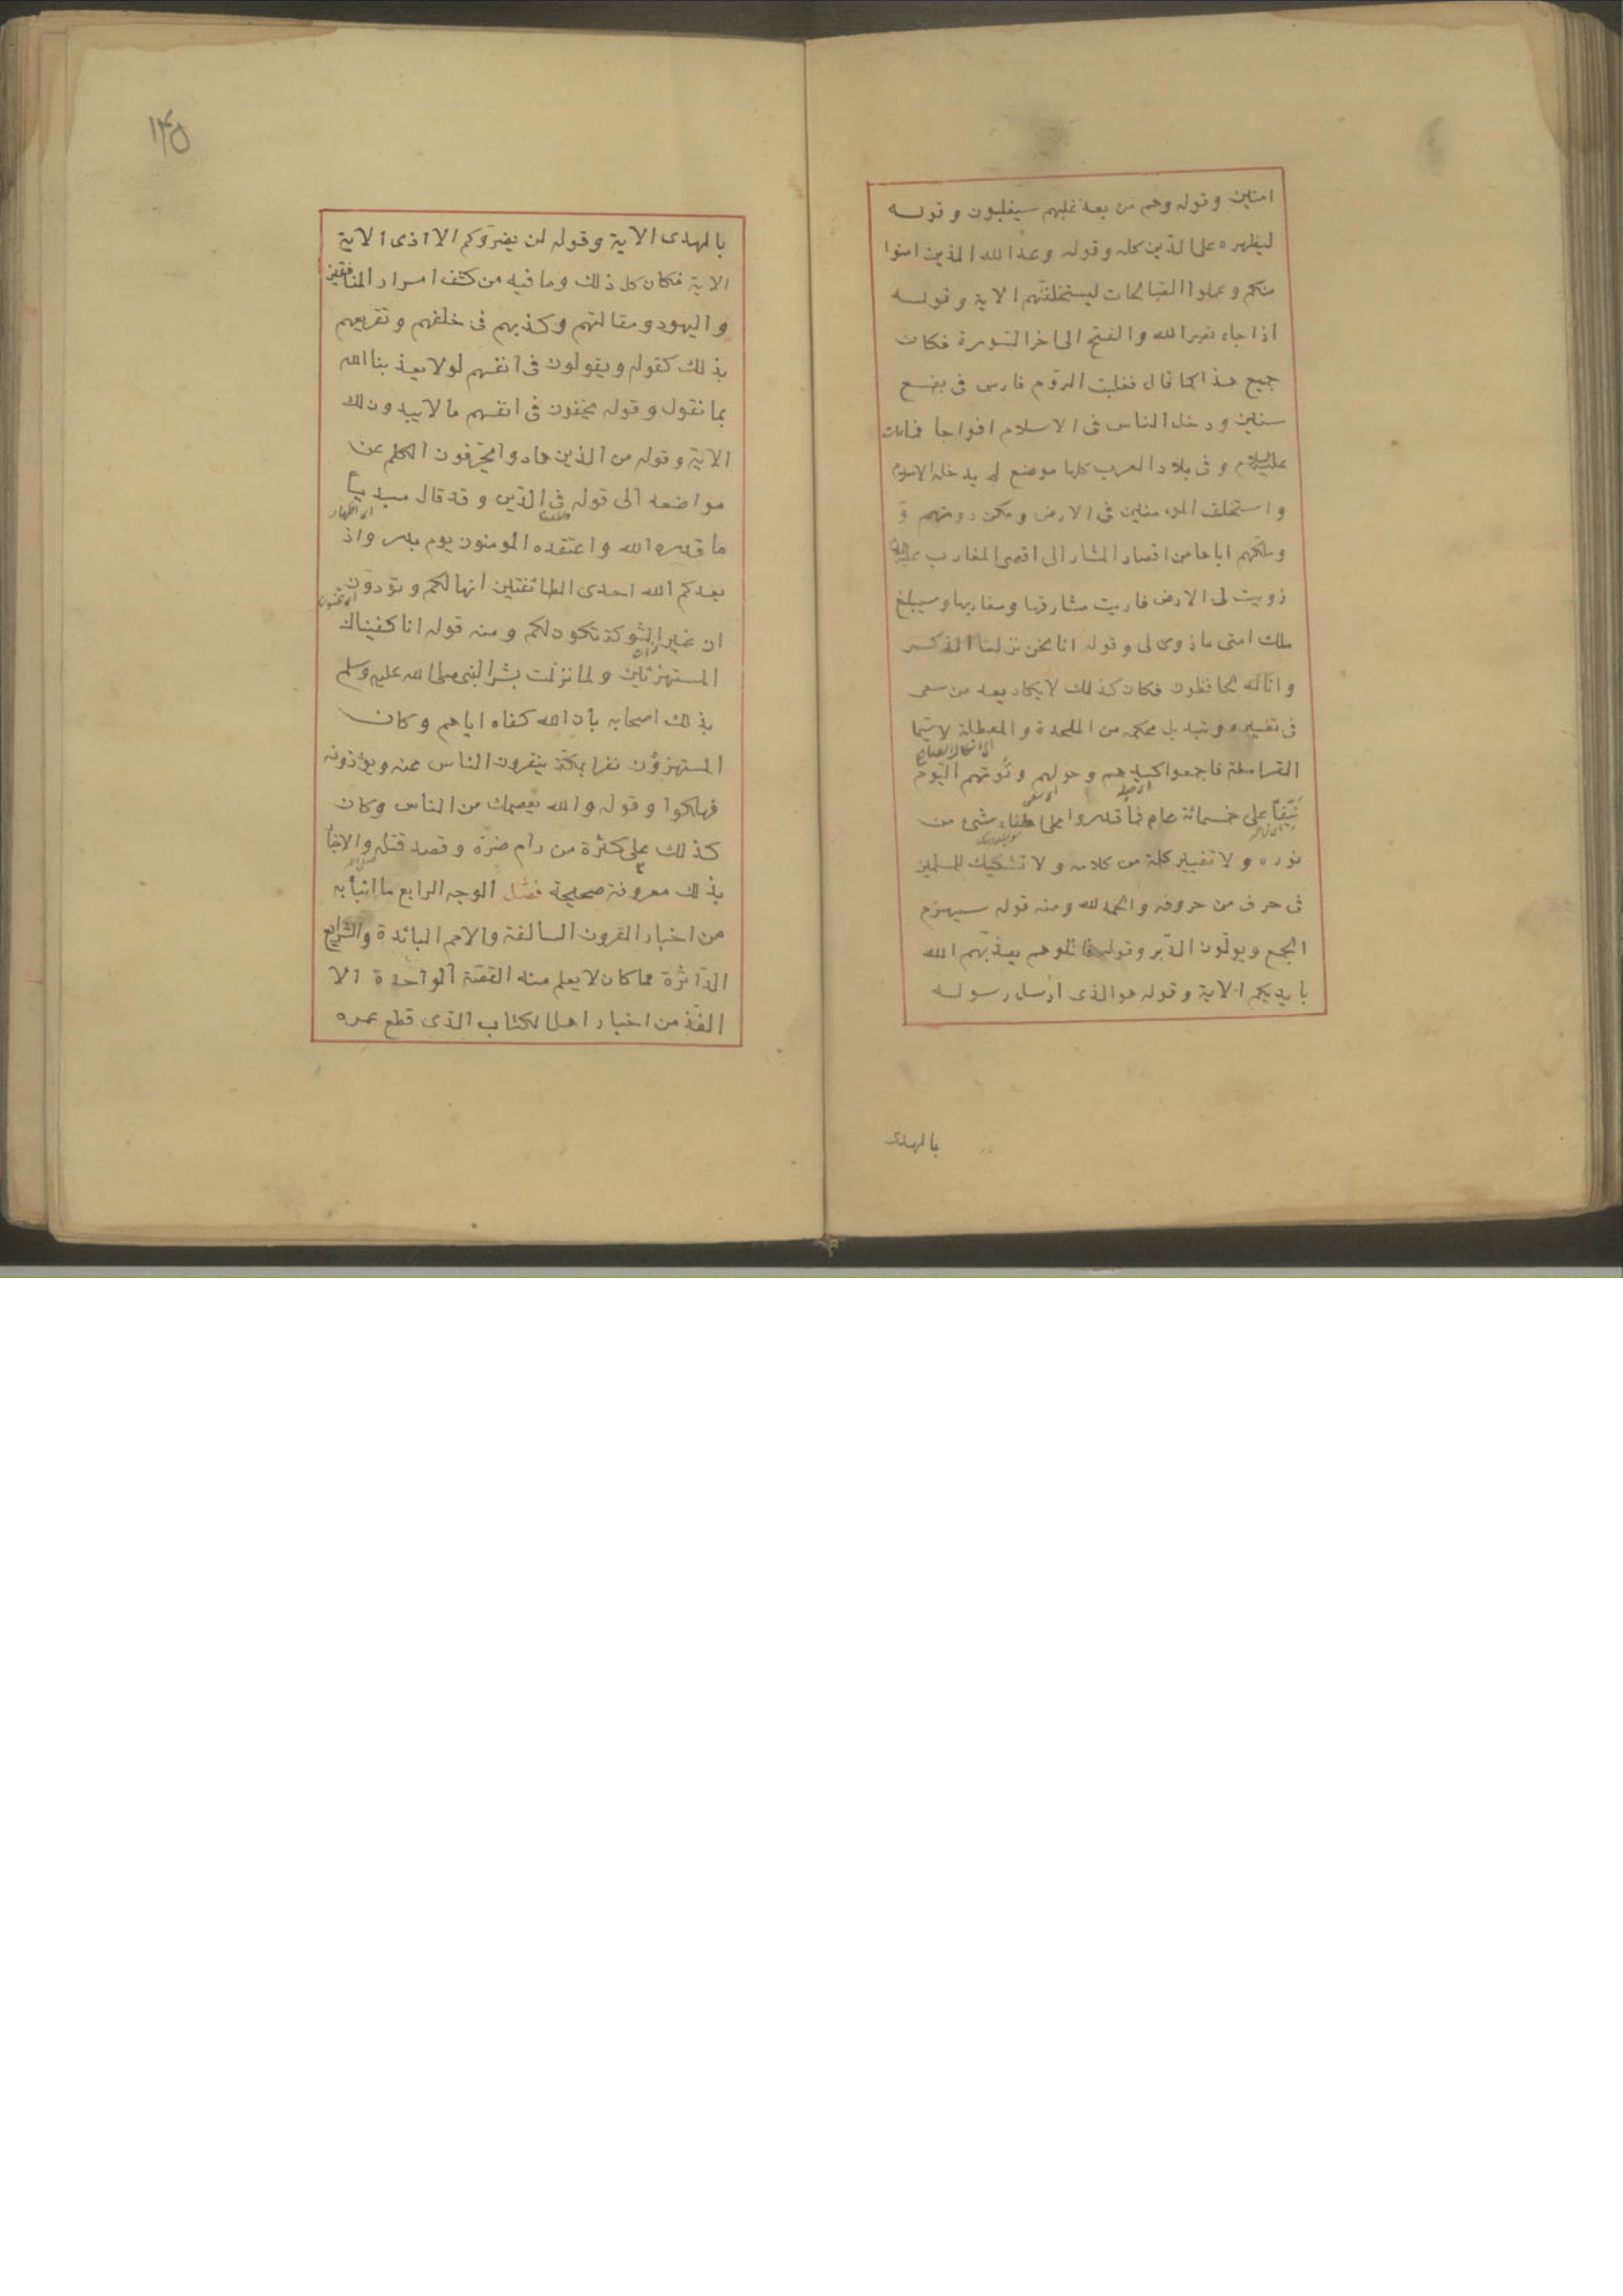 امنين وقوله وهم من بعد غلبهم سيغلبون وقوله
ليظهره على الدّين كله وقوله وعد الله الذين امنوا
منكم وعملوا الصّالحات ليستخلفنّهم الاية وقوله
اذا جاء نصر الله والفتح الى اخر السّورة فكان
جميع هذا كما قال فغلبت الرّوم فارس فى بضع
سنين ودخل الناس فى الاسلام افواجا فمامات
عليه السلام وفى بلاد العرب كلها موضع لم يدخله الاسلام
واستخلف المؤمنين فى الارض ومكن دينهم
وملّكهم اياها من اقصى المشارق الى اقصى المغارب
زويت لى الارض فاريت مشارقها ومغاربها وسيبلغ
ملك امتى ما زوى لى وقوله انا نحن نزلنا الذكر
وانا له لحافظون فكان كذلك لايكاد يعد من سعى
فى تغييره وتبديل محكمه من الملحدة والمعطلة لاسيّما
القرامطة فاجمعوا كيدهم وحولهم وقوّتهم اليوم
نيّفا على خمسمائة عام فما قدروا على اطفاء شئ من
نوره ولا تغيير كلمة من كلامه ولا تشكيك المسلمين
فى حرف من حروفه والحمد لله ومنه قوله سيهزم
الجمع ويولّون الدّبر وقوله قاتلوهم يعذّبهم الله
بايديكم الاية وقوله هو الذى ارسل رسوله
بالهدى
١٣٥
بالهدى الاية وقوله لن يضرّوكم الا اذى الاية
الاية فكان كل ذلك وما فيه من كشف اسرار المنافقين
واليهود ومقالتهم وكذبهم فى حلفهم وتقريعهم
بذلك كقوله ويقولون فى انفسهم لولا يعذبنا الله
بما نقول وقوله يخفون فى انفسهم مالا يبدون لك
الاية وقوله من الذين هادوا يحرّفون الكلم عن
مواضعه الى قوله فى الدّين وقد قال مبديا
اى اظهار
ما قدره الله واعتقده المومنون يوم بدر واذ
يعدكم الله احدى الطائفتين انها لكم وتودّون
ان غير الشوكة تكون لكم ومنه قوله انا كفيناك
ذات
المستهزئين ولما نزلت بشر النبى صلى الله عليه وسلم
بذلك اصحابه بان الله كفاه اياهم وكان
المستهزؤن نفرا بمكّة ينفّرون الناس عنه ويؤذونه
فهلكوا وقوله والله يعصمك من الناس وكان
كذلك على كثرة من رام ضرّه وقصد قتله والاخبار
بذلك معروفة صحيحة فصل الوجه الرابع ما انبأ به
من اخبار القرون السالفة والامم البائدة والشّرايع
الدّاثرة مما كان لا يعلم منه القصّة الواحدة الا
الفذ من اخبار اهل الكتاب الذى قطع عمره